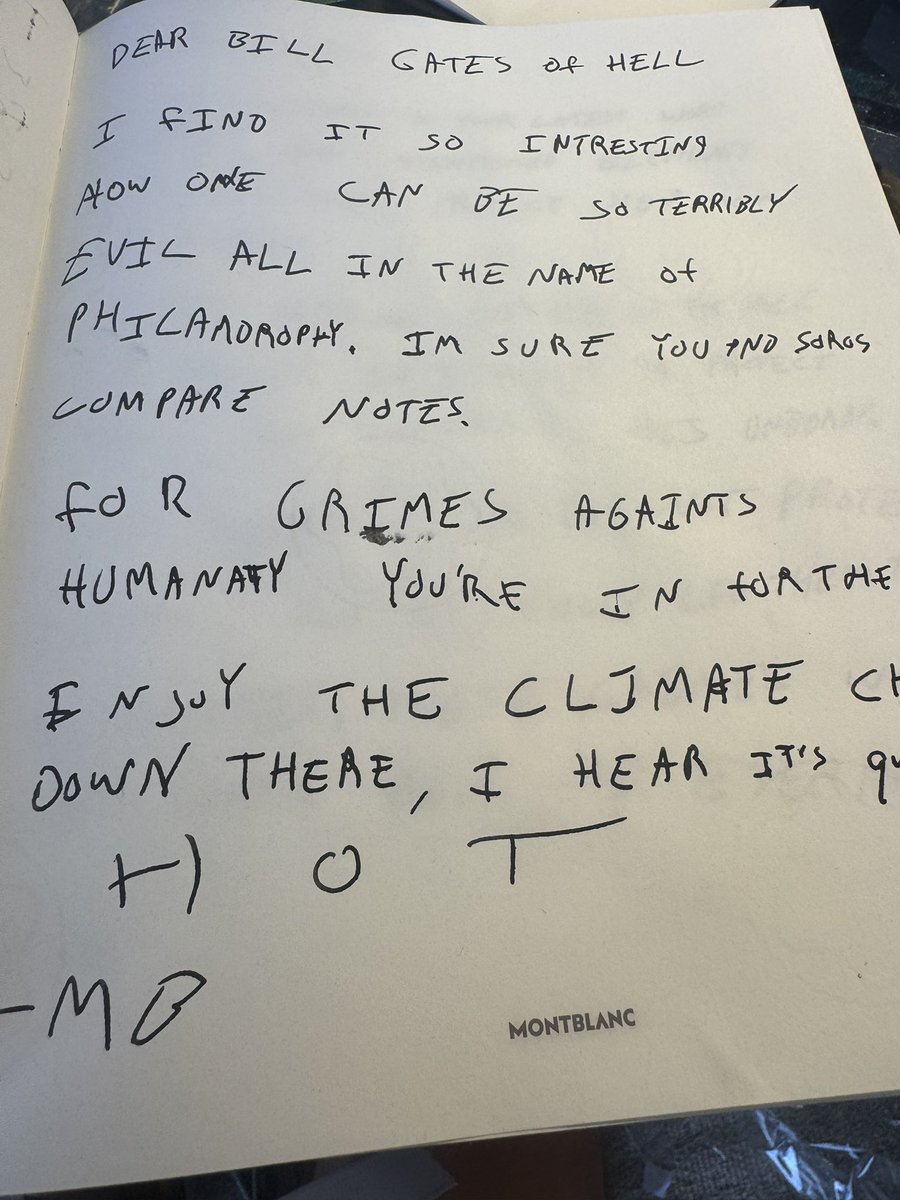 DEAR BILL GATES of HELL
I fIND IT SO INTRESTING
HOW ONE CAN BE SO TERRIBLY
EVIL ALL IN THE NAME of
PHILANDROPHY. IM SURE YOU AND SOROS
COMPARE NOTES.
foR CRIMES AGAINTS
HUMANATY YOU'RE IN foR THE
ENJOY THE CLIMATE CH
DOWN THERE, I HEAR IT'S qu
HOT
-MB
MONTBLANC